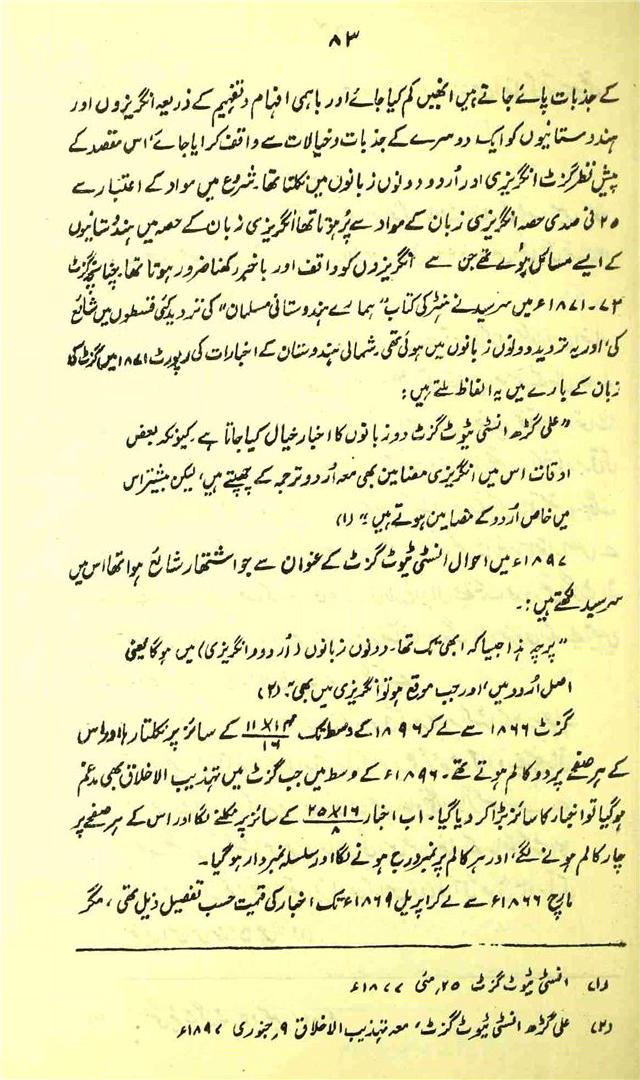 ۸۳
کے جذبات پائے جاتے ہیں انھیں کم کیا جائے اور باہمی افہام و تفہیم کے ذریعہ انگریزوں اور
ہندوستانیوں کو ایک دوسرے کے جذبات و خیالات سے واقف کرایا جائے، اس مقصد کے
پیش نظر گزٹ انگریزی اور اُردو دونوں زبانوں میں نکلتا تھا۔ شروع میں مواد کے اعتبار سے
۲۵ فی صدی حصہ انگریزی زبان کے مواد سے پُر ہوتا تھا انگریزی زبان کے حصہ میں ہندوستانیوں
کے ایسے مسائل ہوتے تھے جن سے انگریزوں کو واقف اور باخبر رکھنا ضرور ہوتا تھا۔ چنانچہ گزٹ
۷۲۔۱۸۷۱ء میں سرسید نے ہنٹر کی کتاب "ہمارے ہندوستانی مسلمان" کی تردید کئی قسطوں میں شائع
کی، اور یہ تردید دونوں زبانوں میں ہوئی تھی۔ شمالی ہندوستان کے اخبارات کی رپورٹ ۱۸۷۱ میں گزٹ کی
زبان کے بارے میں یہ الفاظ ملتے ہیں:
"علی گڑھ انسٹی ٹیوٹ گزٹ دو زبانوں کا اخبار خیال کیا جاتا ہے۔ کیونکہ بعض
اوقات اس میں انگریزی مضامین بھی معہ اُردو ترجمہ کے چھپتے ہیں، لیکن بیشتر اس
میں خاص اُردو کے مضامین ہوتے ہیں۔" (۱)
۱۸۹۷ء میں احوال انسٹی ٹیوٹ گزٹ کے عنوان سے جو اشتہار شائع ہوا تھا اس میں
سرسید لکھتے ہیں:۔
"پرچہ ہذا جیسا کہ ابھی تک تھا۔ دونوں زبانوں (اُردو و انگریزی) میں ہوگا یعنی
اصل اُردو میں، اور جب موقع ہو تو انگریزی میں بھی"۔ (۲)
گزٹ ۱۸۶۶ سے لے کر ۱۸۹۶ کے وسط تک ۱۱x۱۴/۱۶ کے سائز پر نکلتا رہا اور اس
کے ہر صفحے پر دو کالم ہوتے تھے۔ ۱۸۹۶ء کے وسط میں جب گزٹ میں تہذیب الاخلاق بھی مدغم
ہوگیا تو اخبار کا سائز بڑا کر دیا گیا۔ اب اخبار ۲۵x۱۶/۸ کے سائز پر نکلنے لگا اور اس کے ہر صفحے پر
چار کالم ہونے لگے، اور ہر کالم پر نمبر درج ہونے لگا اور سلسلہ نمبر دار ہوگیا۔
مارچ ۱۸۶۶ء سے لے کر اپریل ۱۸۶۹ء تک اخبار کی قیمت حسب تفصیل ذیل تھی، مگر
(۱) انسٹی ٹیوٹ گزٹ ۲۵، مئی ۱۸۷۷ء
(۲) علی گڑھ انسٹی ٹیوٹ گزٹ، معہ تہذیب الاخلاق ۹، جنوری ۱۸۹۷ء